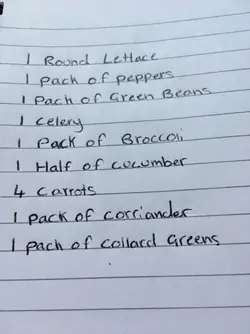 1 Round Lettace
1 pach of peppers
1 pach of Green Beans
1 celery
1 pack of Broccoli
1 Half of cucumber
4 carrots
1 pack of corriander
1 pach of collard Greens